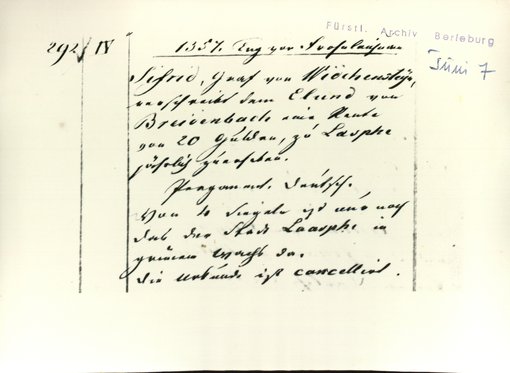 Fürstl. Archiv Berleburg
292/ IV
1357. Tag vor Frohnleichnam
Juni 7
Sifrid, Graf von Widchenstein,
verschreibt dem Elund von
Breidenbach eine Rente
von 20 Gulden, zu Laasphe
jährlich zu erheben.
Pergament. Deutsch.
Von 4 Siegeln ist nur noch
das der Stadt Laasphe in
grünem Wachs da.
Die Urkunde ist cancellirt.